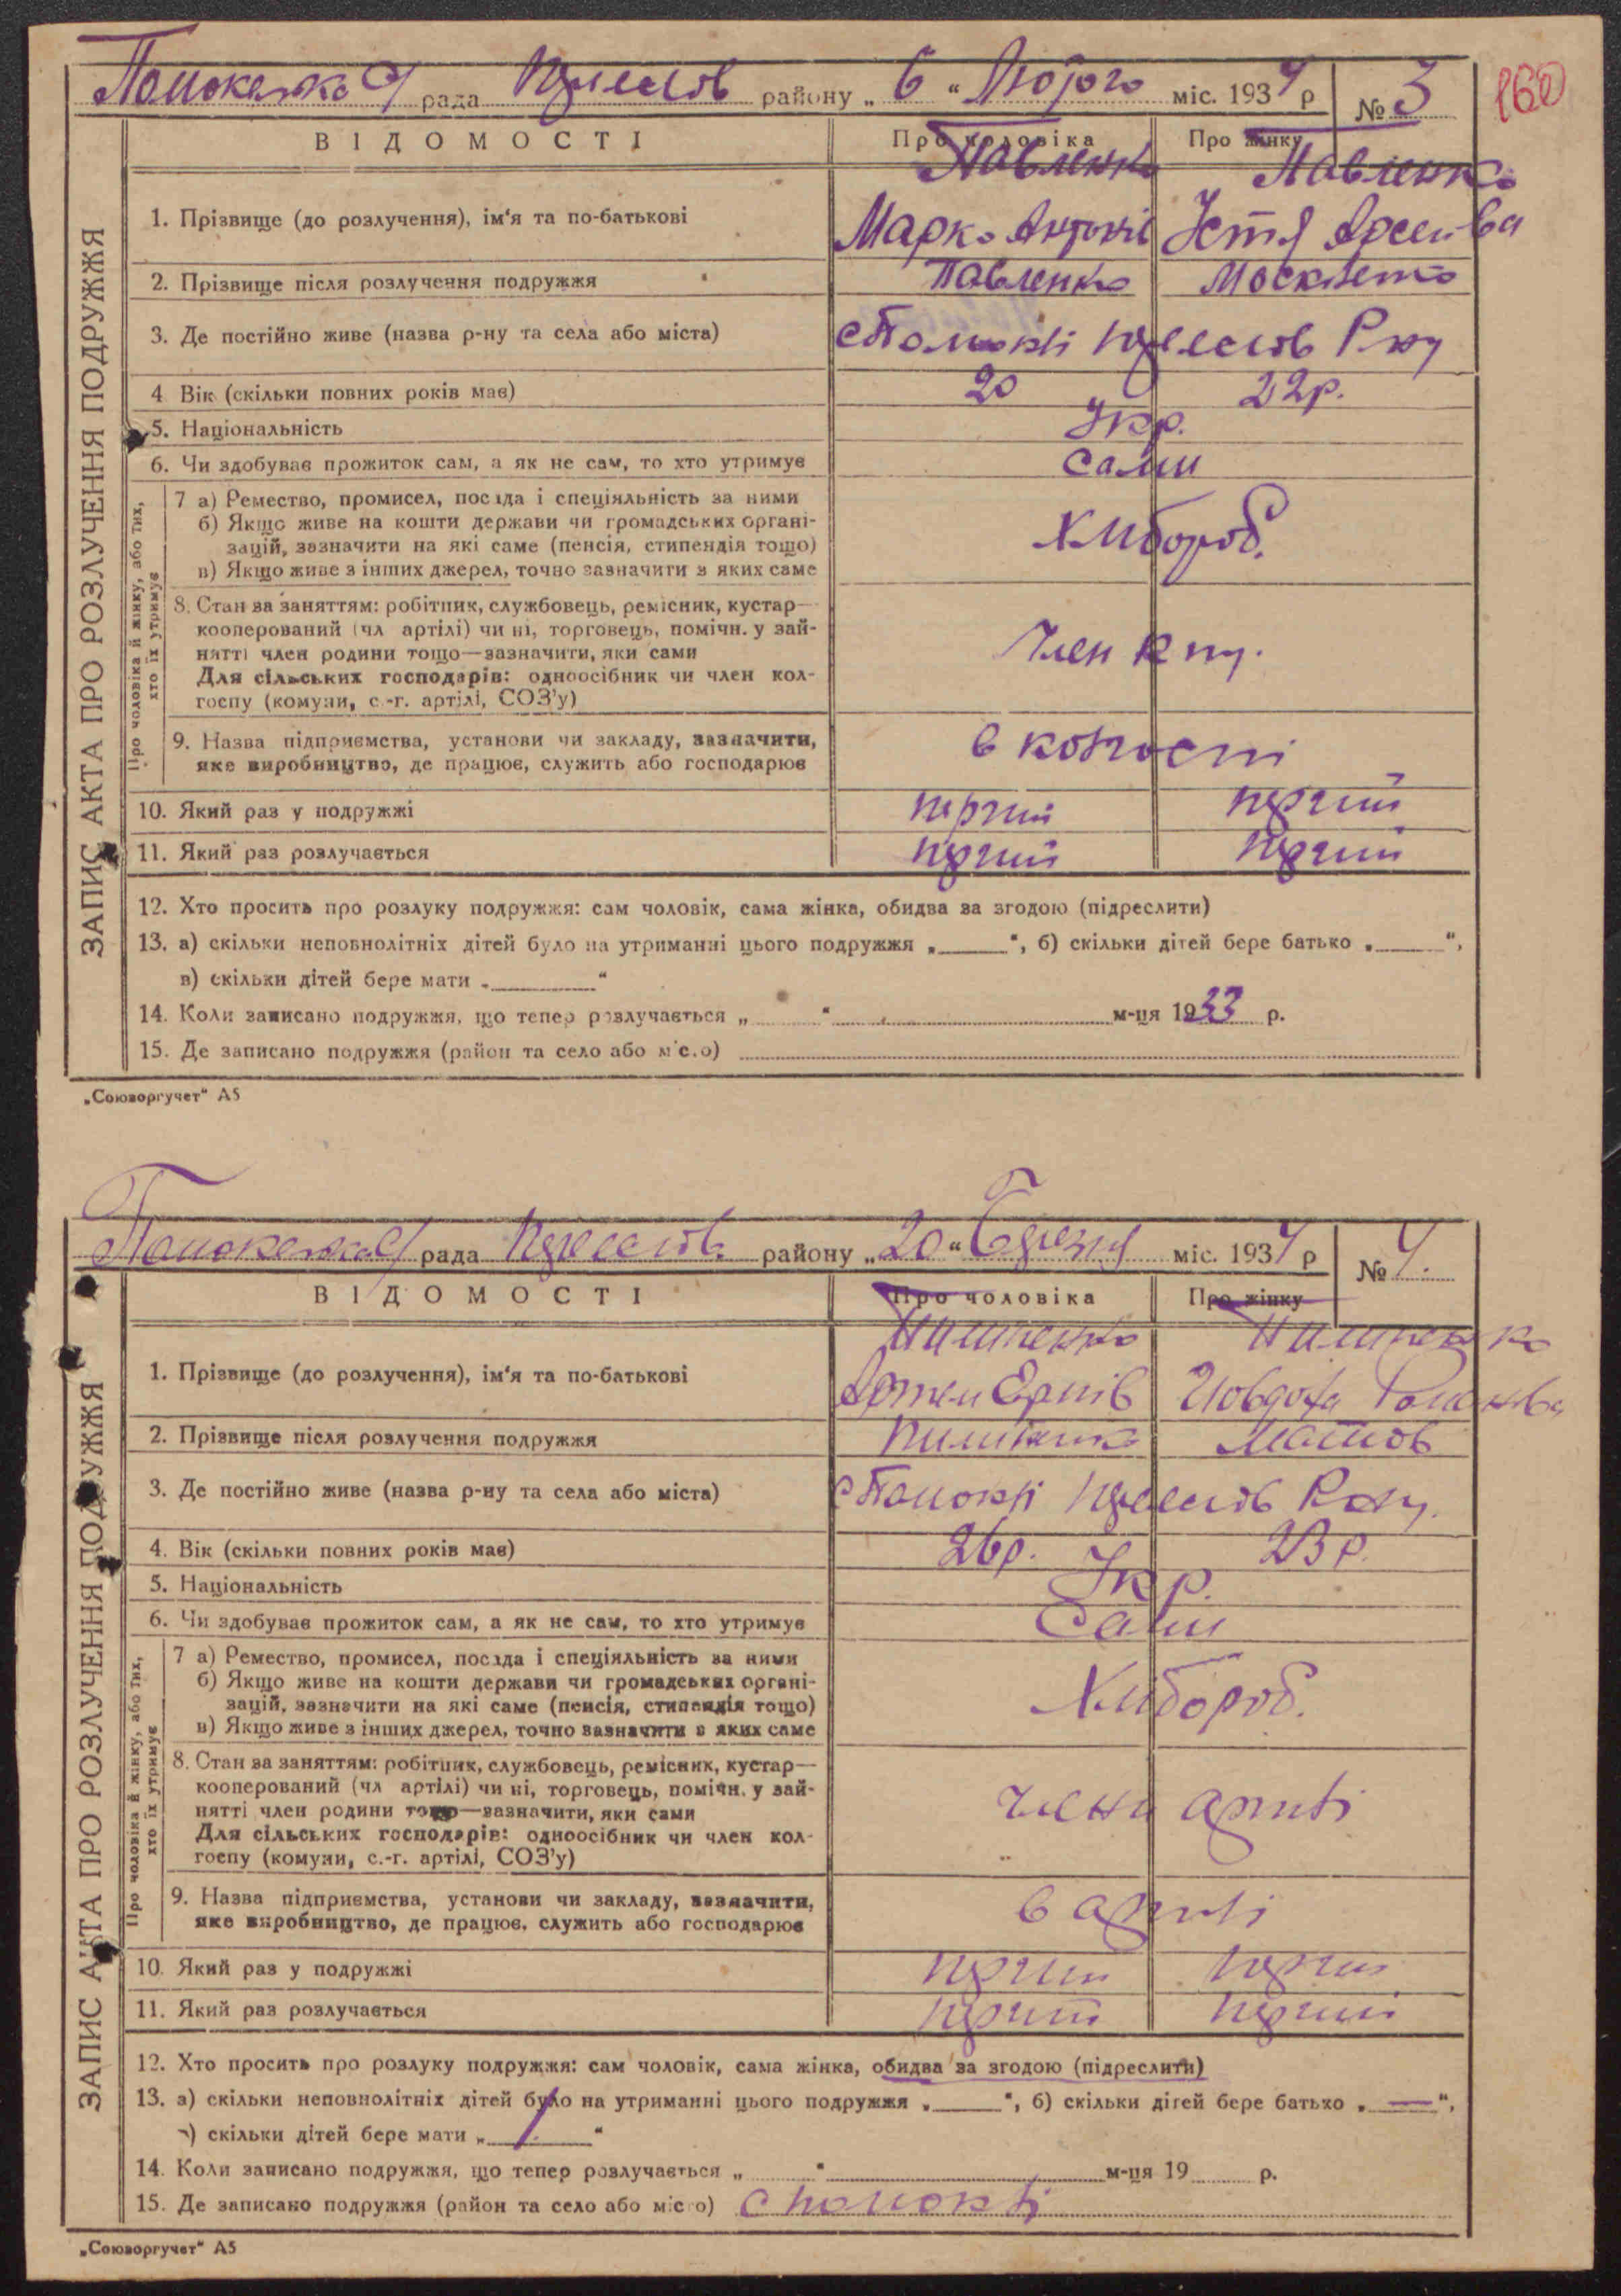 рада району „ 6 “ Лютого міс. 1934 р № 3
160
ВІДОМОСТІ Про чоловіка Про жінку
Павленко Павленко
1. Прізвище (до розлучення), ім‘я та по-батькові
Марко Антонів Устя
2. Прізвище після розлучення подружжя Павленко
3. Де постійно живе (назва р-ну та села або міста)
4 Вік (скільки повних років має) 20 22р.
5. Національність Укр.
6. Чи здобуває прожиток сам, а як не сам, то хто утримує сами
Про чоловіка й жінку, або тих, хто їх утримує
7 а) Ремество, промисел, посада і спеціяльність за ними
б) Якщо живе на кошти держави чи громадських органі-
зацій, зазначити на які саме (пенсія, стипендія тощо)
в) Якщо живе з інших джерел, точно зазначити з яких саме
Хлібороб.
8. Стан за заняттям: робітник, службовець, ремісник, кустар—
кооперований (чл артілі) чи ні, торговець, помічн. у зай-
нятті член родини тощо—зазначити, яки сами
Для сільських господарів: одноосібник чи член кол-
госпу (комуни, с.-г. артілі, СОЗ’у)
Член
9. Назва підприємства, установи чи закладу, зазначити,
яке виробництво, де працює, служить або господарює
в колгоспі
10. Який раз у подружжі перший перший
11. Який раз розлучається перший перший
12. Хто просить про розлуку подружжя: сам чоловік, сама жінка, обидва за згодою (підреслити)
13. а) скільки неповнолітніх дітей було на утриманні цього подружжя „ “, б) скільки дітей бере батько „ “,
в) скільки дітей бере мати „ “
14. Коли записано подружжя, що тепер розлучається „ “ м-ця 1933 р.
15. Де записано подружжя (район та село або місто)
ЗАПИС АКТА ПРО РОЗЛУЧЕННЯ ПОДРУЖЖЯ
„Союзоргучет“ А5
рада району „ 20 “ Березня міс. 1934 р № 4.
ВІДОМОСТІ Про чоловіка Про жінку
Пилипенко Пилипенко
1. Прізвище (до розлучення), ім‘я та по-батькові
Йовдоха Романова
2. Прізвище після розлучення подружжя Пилипенко
3. Де постійно живе (назва р-ну та села або міста)
4. Вік (скільки повних років має) 26р. 23р.
5. Національність Укр.
6. Чи здобуває прожиток сам, а як не сам, то хто утримує Сами
Про чоловіка й жінку, або тих, хто їх утримує
7 а) Ремество, промисел, посада і спеціяльність за ними
б) Якщо живе на кошти держави чи громадських органі-
зацій, зазначити на які саме (пенсія, стипендія тощо)
в) Якщо живе з інших джерел, точно зазначити з яких саме
Хлібороб.
8. Стан за заняттям: робітник, службовець, ремісник, кустар—
кооперований (чл артілі) чи ні, торговець, помічн. у зай-
нятті член родини тощо—зазначити, яки сами
Для сільських господарів: одноосібник чи член кол-
госпу (комуни, с.-г. артілі, СОЗ’у)
члени артілі
9. Назва підприємства, установи чи закладу, зазначити,
яке виробництво, де працює, служить або господарює
в артілі
10. Який раз у подружжі перший перший
11. Який раз розлучається перший перший
12. Хто просить про розлуку подружжя: сам чоловік, сама жінка, обидва за згодою (підреслити)
13. а) скільки неповнолітніх дітей було на утриманні цього подружжя „ “, б) скільки дітей бере батько „ — “,
в) скільки дітей бере мати „ 1. “
14. Коли записано подружжя, що тепер розлучається „ “ м-ця 19 р.
15. Де записано подружжя (район та село або місто)
ЗАПИС АКТА ПРО РОЗЛУЧЕННЯ ПОДРУЖЖЯ
„Союзоргучет“ А5